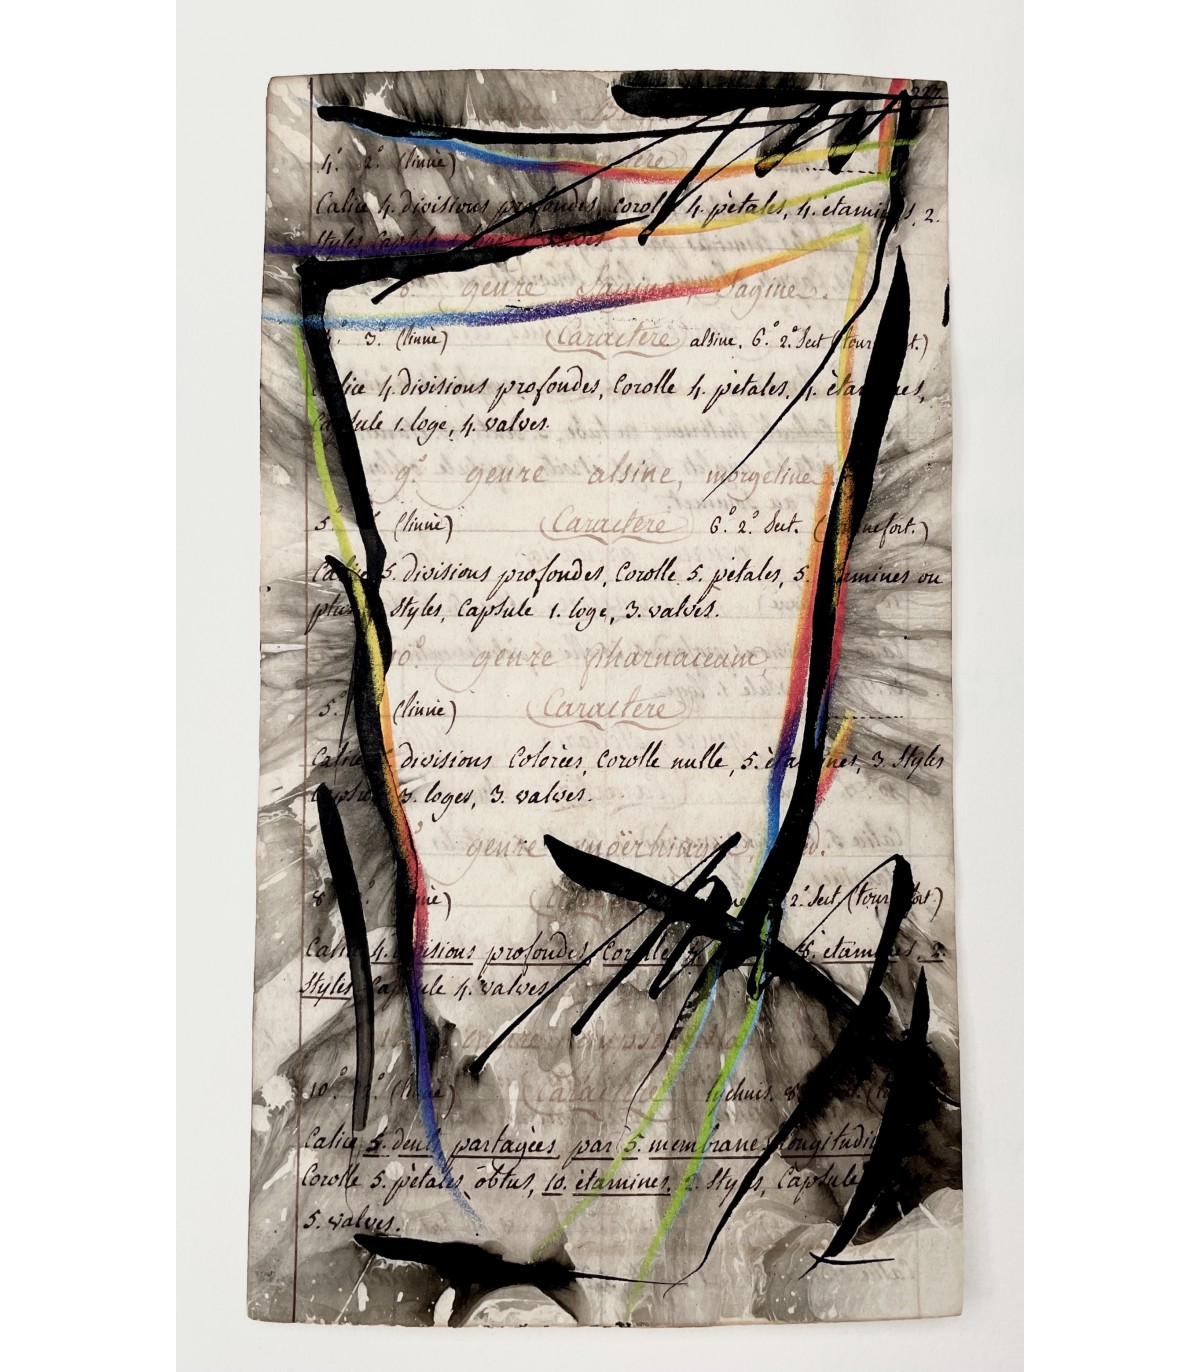 227
4.° 2.° (linnè) Caractere
Calice 4. divisions profondes, Corolle 4. pètales, 4. ètamines, 2.
Styles, Capsule 1. loge, valves
8.° genre Sagina, Sagine.
4.° 3.° (linnè) Caractere alsine. 6.° 2.° Sect. (tournefort.)
Calice 4. divisions profondes, Corolle 4. pètales, 4. ètamines,
Capsule 1. loge, 4. valves.
9.° genre alsine, morgeline
5.° (linnè) Caractere 6.° 2.° Sect. (tournefort.)
Calice 5. divisions profondes, Corolle 5. pètales, 5. ètamines ou
plus, Styles, Capsule 1. loge, 3. valves.
10.° genre pharnaceum
5.° (linnè) Caractere
Calice divisions Colorèes, Corolle nulle, 5. ètamines, 3. Styles
Capsule 3. loges, 3. valves.
genre moërhingia
8.° (linnè) 2.° Sect. (tournefort)
Calice 4. divisions profondes, Corolle 4. 8. ètamines, 2.
Styles, Capsule 4. valves
genre gypsophila
10.° 2.° (linnè) Caractere lychnis. 8.°
Calice 5. dents partagèes par 5. membranes longitudi
Corolle 5. pètales obtus, 10. ètamines, 2. Styles, Capsule
5. valves.